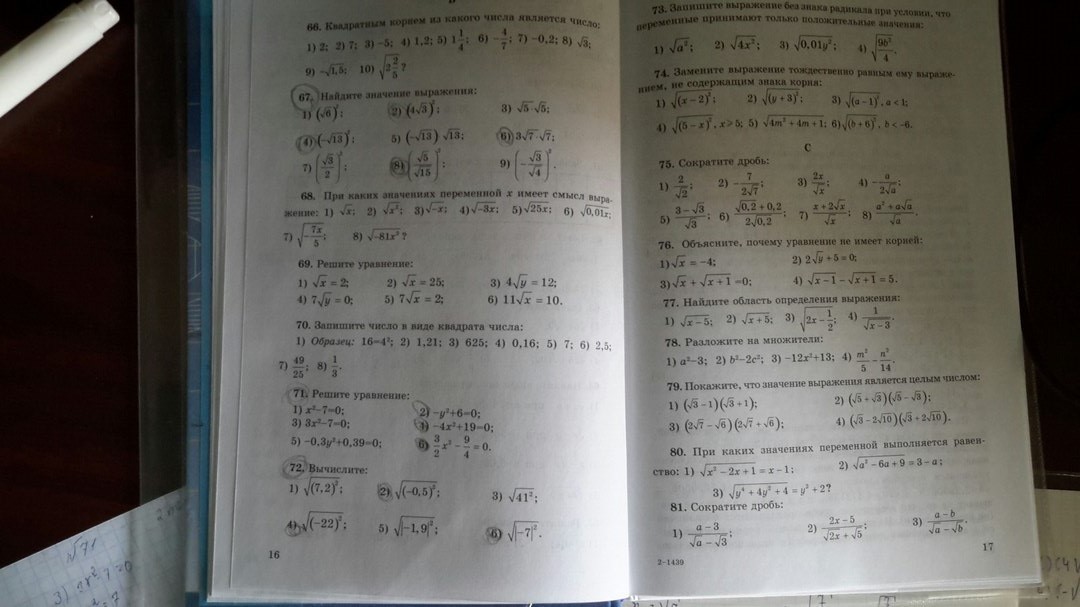 66. Квадратным корнем из какого числа является число:
1) 2; 2) 7; 3) −5; 4) 1,2; 5) 1 1/4; 6) −4/7; 7) −0,2; 8) √3;
9) −√1,5; 10) √(3 2/5)?
67. Найдите значение выражения:
1) (√6)²; 2) (4√3)²; 3) √5·√5;
4) (−√13)²; 5) (−√13) √13; 6) 3√7·√7;
7) (√3/2)²; 8) (√5/√15)²; 9) (−√3/√4)².
68. При каких значениях переменной x имеет смысл выра-
жение: 1) √x; 2) √x²; 3) √−x; 4) √−3x; 5) √25x; 6) √0,01x;
7) √(−7x/5); 8) √−81x³?
69. Решите уравнение:
1) √x = 2; 2) √x = 25; 3) 4√y = 12;
4) 7√y = 0; 5) 7√x = 2; 6) 11√x = 10.
70. Запишите число в виде квадрата числа:
1) Образец: 16=4²; 2) 1,21; 3) 625; 4) 0,16; 5) 7; 6) 2,5;
7) 49/25; 8) 1/3.
71. Решите уравнение:
1) x²−7=0; 2) −y²+6=0;
3) 3x²−7=0; 4) −4x²+19=0;
5) −0,3y²+0,39=0; 6) 3/2 x² − 9/4 = 0.
72. Вычислите:
1) √(7,2)²; 2) √(−0,5)²; 3) √41²;
4) √(−22)²; 5) √|−1,9|²; 6) √|−7|².
16
73. Запишите выражение без знака радикала при условии, что
переменные принимают только положительные значения:
1) √a²; 2) √4x²; 3) √0,01y²; 4) √(9b²/4).
74. Замените выражение тождественно равным ему выраже-
нием, не содержащим знака корня:
1) √(x−2)²; 2) √(y+3)²; 3) √(a−1)², a<1;
4) √(5−x)², x>5; 5) √4m²+4m+1; 6) √(b+6)², b<−6.
C
75. Сократите дробь:
1) 2/√2; 2) −7/2√7; 3) 2x/√x; 4) −a/2√a;
5) (3−√3)/√3; 6) (√0,2+0,2)/2√0,2; 7) (x+2√x)/√x; 8) (a²+a√a)/√a.
76. Объясните, почему уравнение не имеет корней:
1) √x = −4; 2) 2√y+5=0;
3) √x + √x+1 =0; 4) √x−1 − √x+1 = 5.
77. Найдите область определения выражения:
1) √x−5; 2) √x+5; 3) √(2x−1/2); 4) 1/√x−3.
78. Разложите на множители:
1) a²−3; 2) b²−2c²; 3) −12x²+13; 4) m²/5 − n²/14.
79. Покажите, что значение выражения является целым числом:
1) (√3−1)(√3+1); 2) (√5+√3)(√5−√3);
3) (2√7−√6)(2√7+√6); 4) (√3−2√10)(√3+2√10).
80. При каких значениях переменной выполняется равен-
ство: 1) √x²−2x+1 = x−1; 2) √a²−6a+9 = 3−a;
3) √y⁴+4y²+4 = y²+2?
81. Сократите дробь:
1) (a−3)/(√a−√3); 2) (2x−5)/(√2x+√5); 3) (a−b)/(√a−√b).
2-1439
17
√71